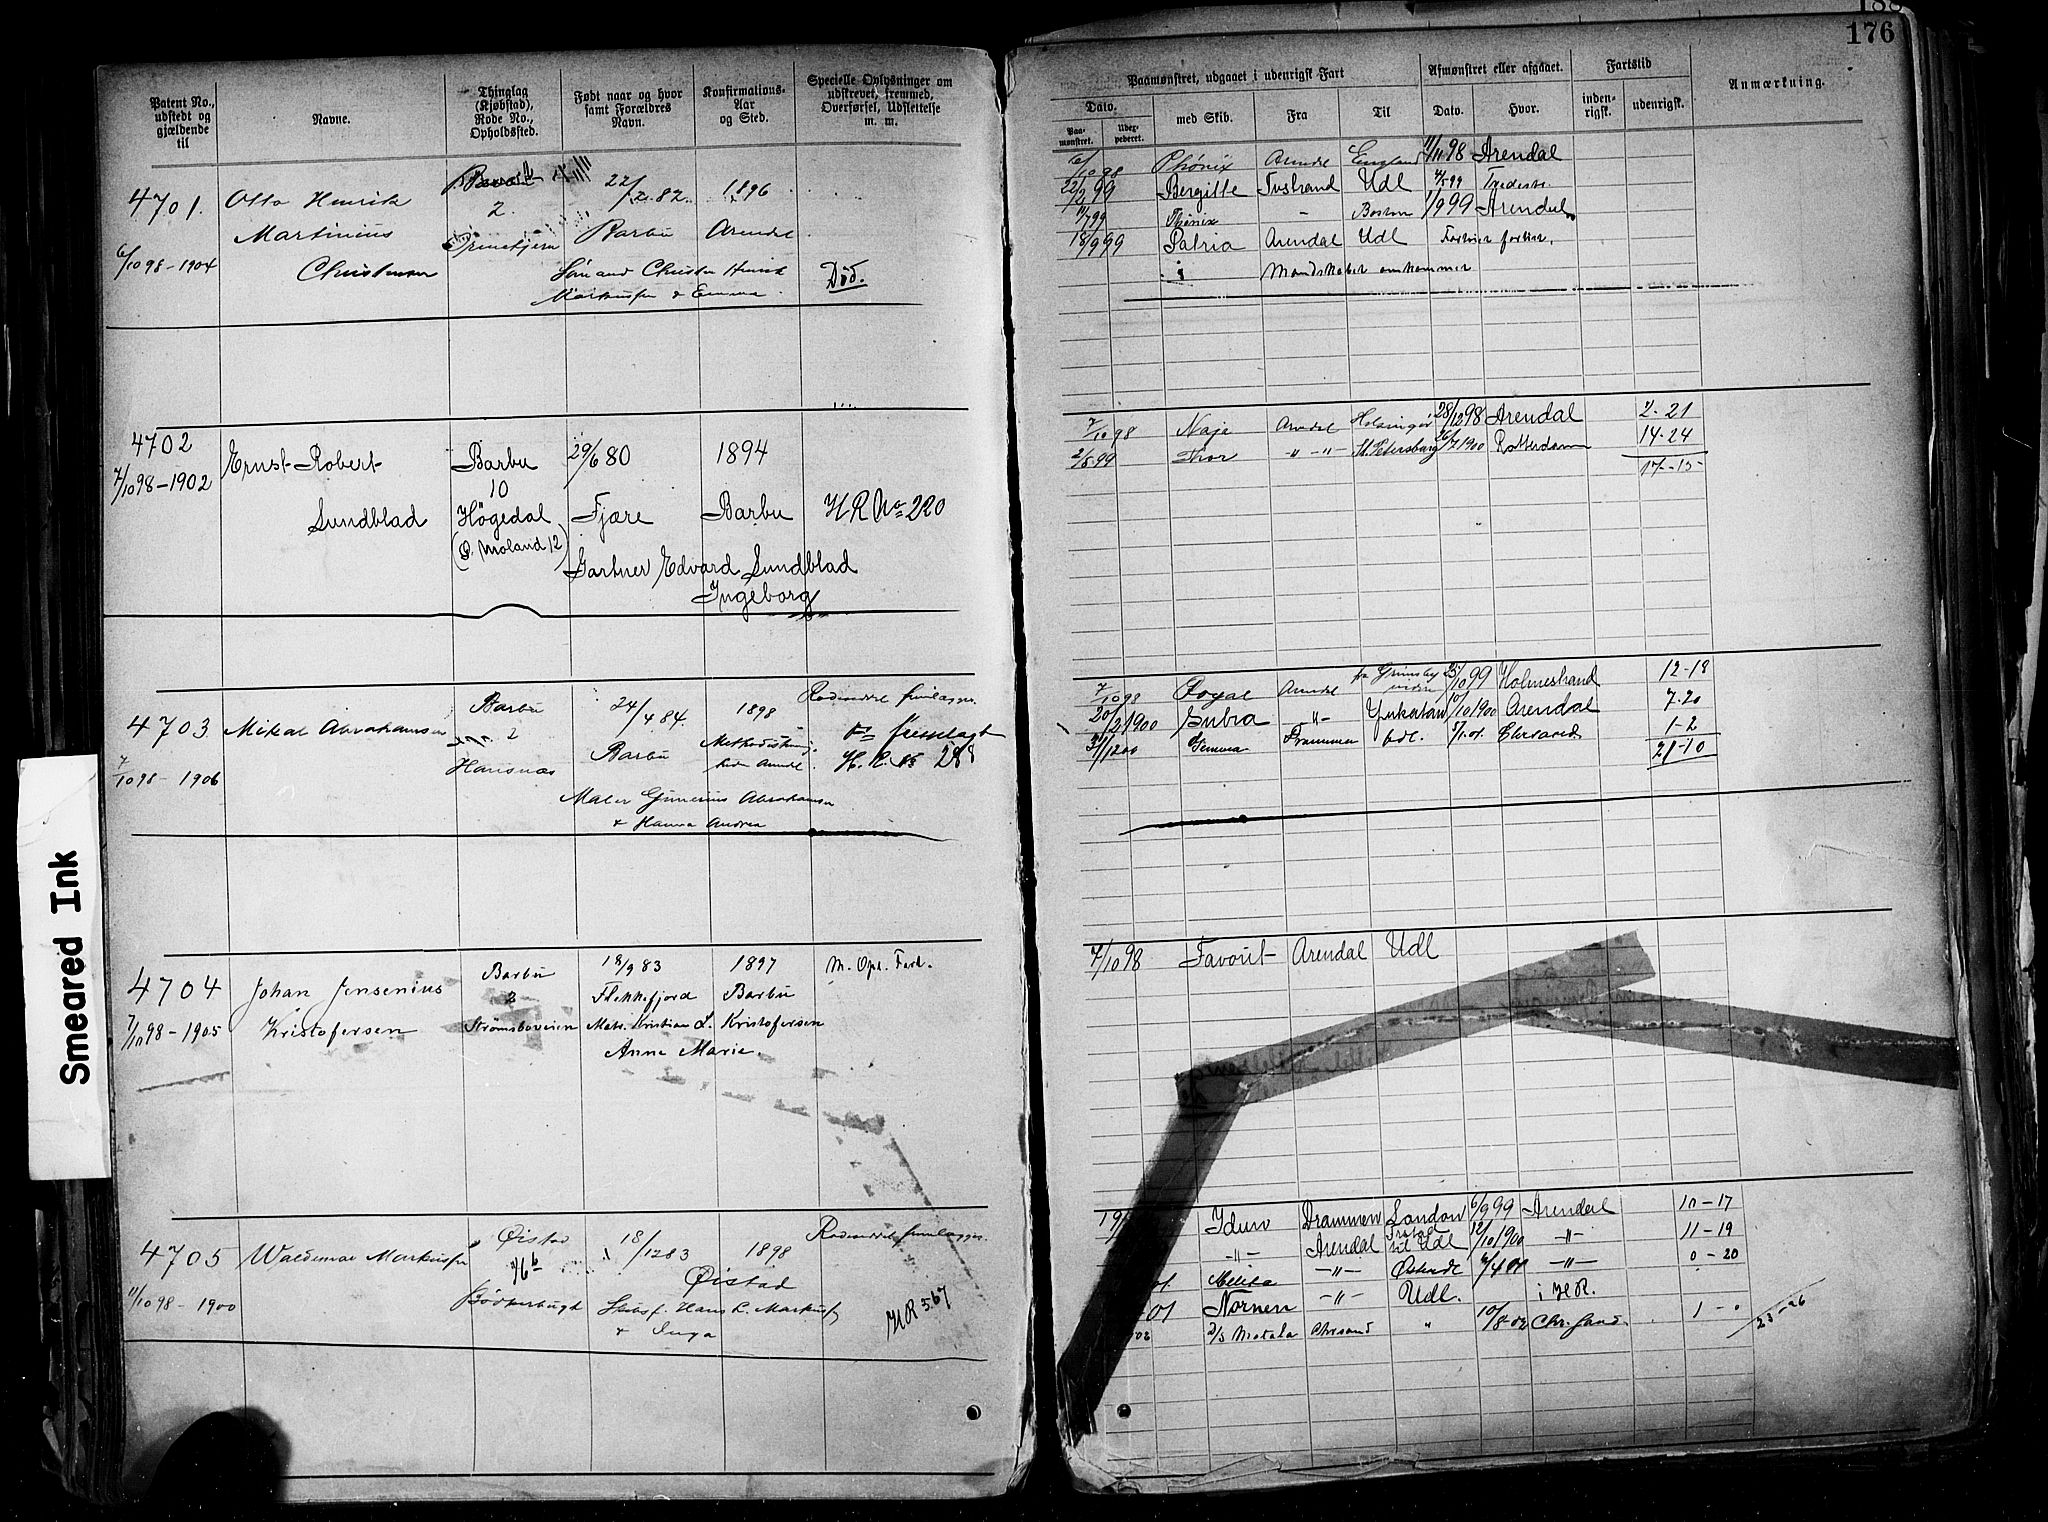 188
176
Patent No., udstedt og gjældende til
Navne.
Thinglag (Kjøbstad), Rode No., Opholdssted.
Født naar og hvor samt Forældres Navn.
Konfirmations- Aar og Sted.
Specielle Oplysninger om udskrevet, fremmed, Overførsel, Udslettelse m. m.
Paamønstret, udgaaet i udenrigsk Fart
Afmønstret eller afgaaet.
Fartstid
Anmærkning.
Dato.
Paa- mønstret.
Udex- pederet.
med Skib.
Fra
Til
Dato.
Hvor.
inden- rigsk.
udenrigsk.
4701.
6/10 98 - 1904
Otto Henrik
Martinius
Christensen
2.
22/2 82.
Barbu
1896
Arendal
Sømand Christen Henrik
Markussen & Emma
Død.
6/10 98 Phønix Arendal England 11/11 98 Arendal
22/2 99 Bergitte Tvestrand Udl 4/5 99 Tvedestr.
11/7 99 Phønix - Boston 1/9 99 Arendal
18/9 99 Patria Arendal Udl Formen forlist.
Mandskabet omkommet
4702
7/10 98 - 1902
Ernst Robert
Sundblad
Barbu
10
Høgedal
(Ø. Moland 12)
29/6 80
Fjære
1894
Barbu
HR No 220
Gartner Edvard Sundblad
Ingeborg
7/10 98 Naja Arendal Helsingør 28/12 98 Arendal 2-21
2/5 99 Thor -"- -"- St. Petersburg 26/7 1900 Rotterdam 14-24
17-15
4703
7/10 98 - 1906
Mikal Abrahamsen
Barbu
2
Havsnæs
24/4 84.
Barbu
1898
Methodistkirken Arendal
Rodeseddel fremlagges.
do fremlagt
H. R. No 288
Maler Gunerius Abrahamsen
& Hanna Andrea
7/10 98 Arendal Grimsby 25/10 99 Holmestrand 12-18
20/2 1900 Subra -"- Yukatan 10/10 1900 Arendal 7-20
Gemma Drammen Udl. 5/1.01. Chrsand 1-2
21-10
4704
7/10 98 - 1905
Johan Jensenius
Kristofersen
Barbu
2
Strømsboveien
18/9 83
Flekkefjord
1897
Barbu
M. Opl. Fart.
Matr. Kristian L. Kristofersen
Anne Marie.
7/10 98 Favorit Arendal Udl
4705
11/10 98 - 1900
Waldemar Markussen
Øistad
Bødkerbugt
18/12 83
Øistad
1898
Rodeseddel fremlagges.
Skibsf. Hans L. Markussen
& Inga
HR 567
19/ Idun Drammen London 6/9 99 Arendal 10-17
-"- Arendal til Udl 12/10 1900 -"- 11-19
01. Melita -"- Ostende 2/4 01 -"- 0-20
-01 Nornen -"- Udl. i HR.
02 D/S Motala Chrsand " 10/8-02 Chr. sand 1-0
23-26
Smeared Ink